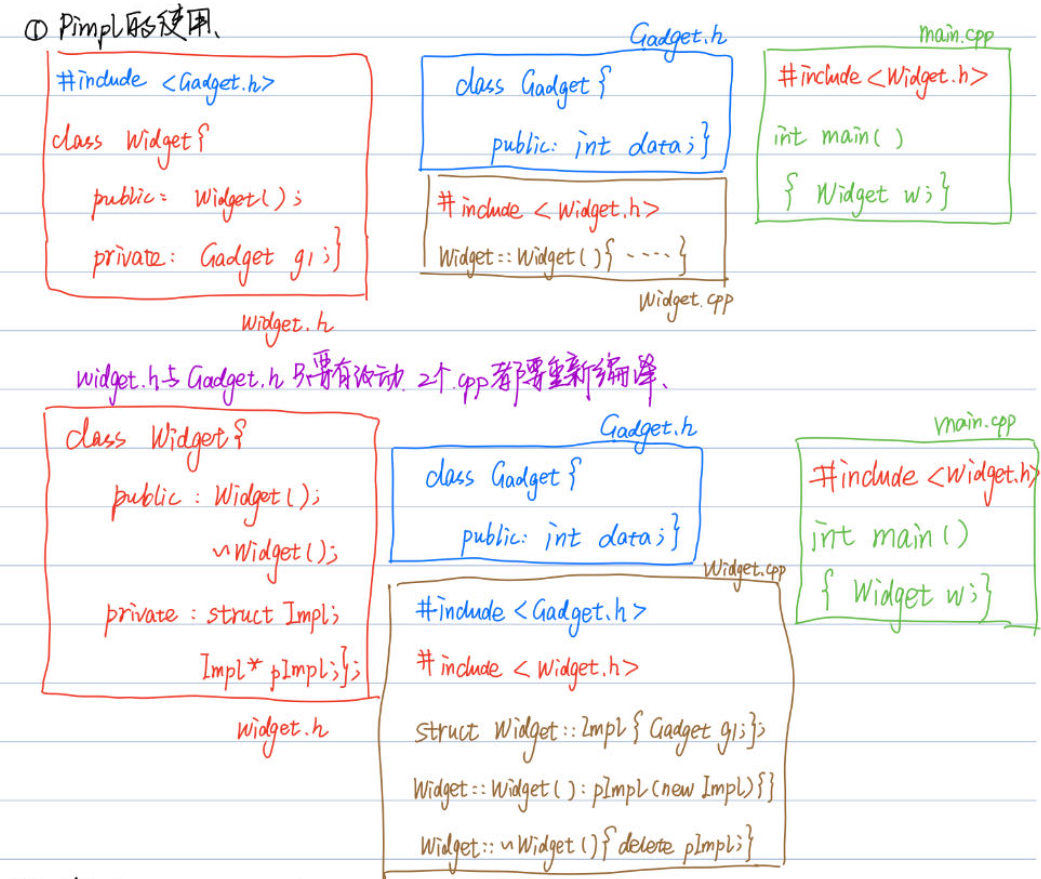 ① Pimpl的使用、
Widget.h
#include <Gadget.h>
class Widget{
public: Widget();
private: Gadget g1;}
Gadget.h
class Gadget{
public: int data;}
#include <Widget.h>
Widget::Widget(){ ····}
Widget.cpp
main.cpp
#include <Widget.h>
int main()
{ Widget w;}
widget.h与Gadget.h 只要有改动. 2个.cpp都要重新编译、
class Widget{
public: Widget();
~Widget();
private: struct Impl;
Impl* pImpl;};
Widget.h
Gadget.h
class Gadget{
public: int data;}
Widget.cpp
#include <Gadget.h>
#include <Widget.h>
struct Widget::Impl{ Gadget g1;};
Widget::Widget():pImpl(new Impl){}
Widget::~Widget(){ delete pImpl;}
main.cpp
#include <Widget.h>
int main()
{ Widget w;}